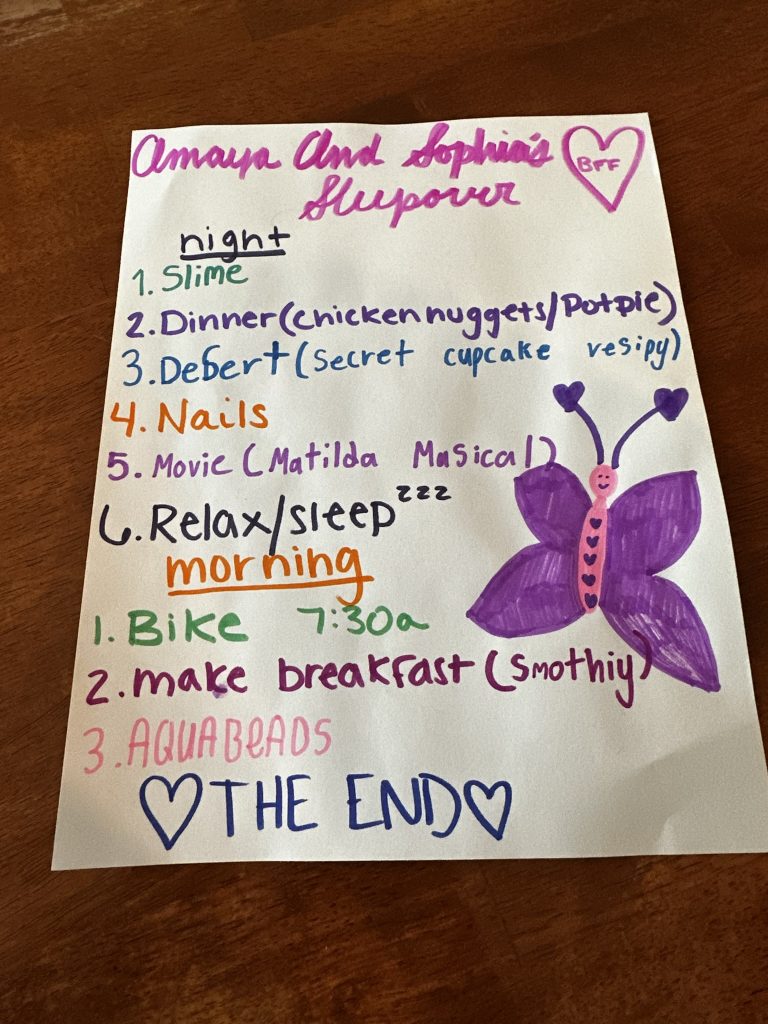 Amaya And Sophia's
BFF
Sleepover
night
1. Slime
2. Dinner (chicken nuggets/Potpie)
3. Desert (Secret cupcake resipy)
4. Nails
5. Movie (Matilda Musical)
6. Relax/sleep zzz
morning
1. Bike 7:30a
2. make breakfast (Smothiy)
3. AQUABeADS
THE END